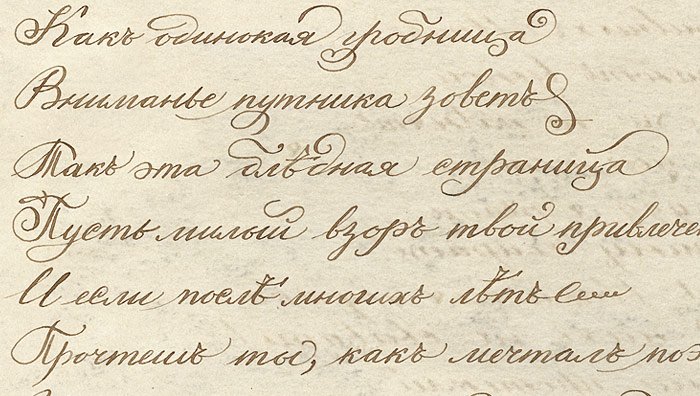 Какъ одинокая гробница
Вниманье путника зоветъ
Такъ эта блѣдная страница
Пусть милый взоръ твой привлече
И если послѣ многихъ лѣтъ
Прочтешь ты, какъ мечталъ поэ